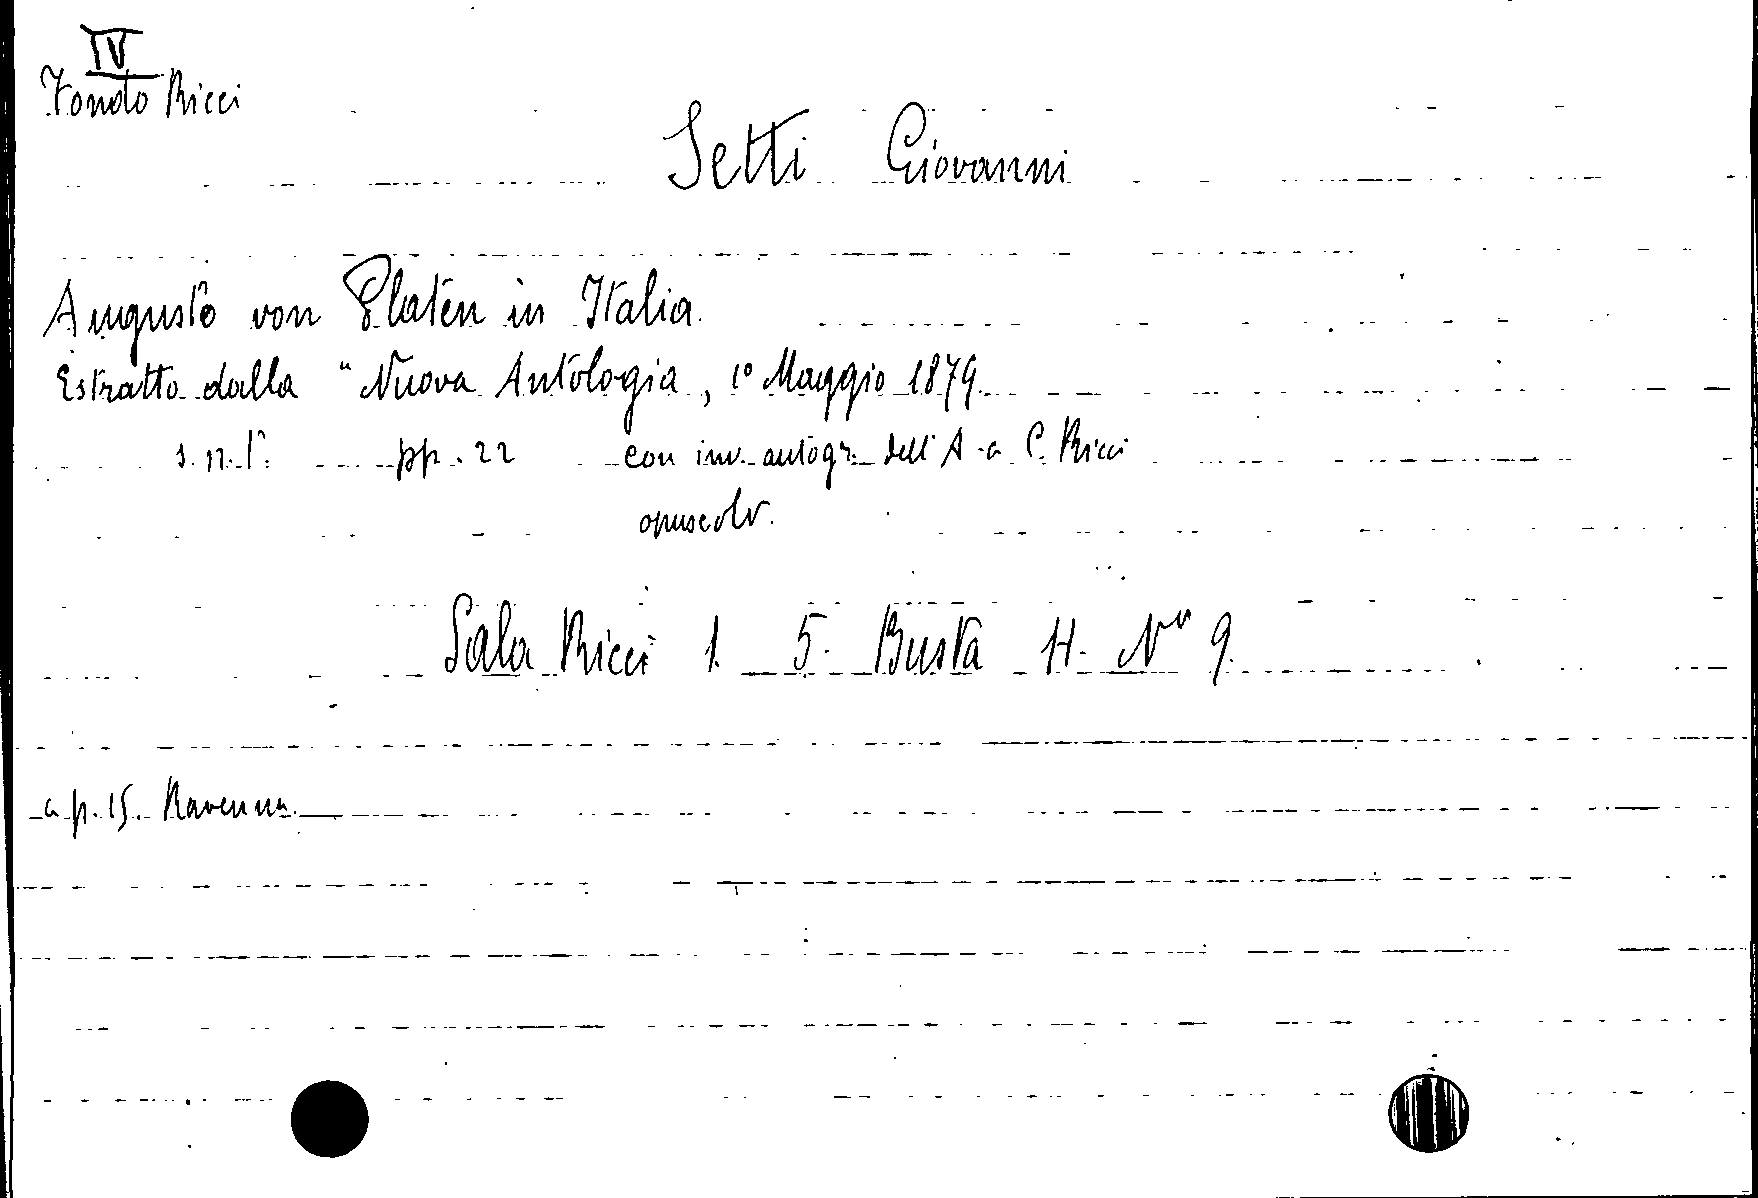 IV
Fondo Ricci
Setti Giovanni
Augusto von Platen in Italia.
Estratto dalla "Nuova Antologia, 1º Maggio 1879.
s.n.t. pp. 22 con inv. autogr. dell'A. a C. Ricci
opuscolo.
Sala Ricci 1. 5. Busta H. Nº 9.
a p. 15. Ravenna.